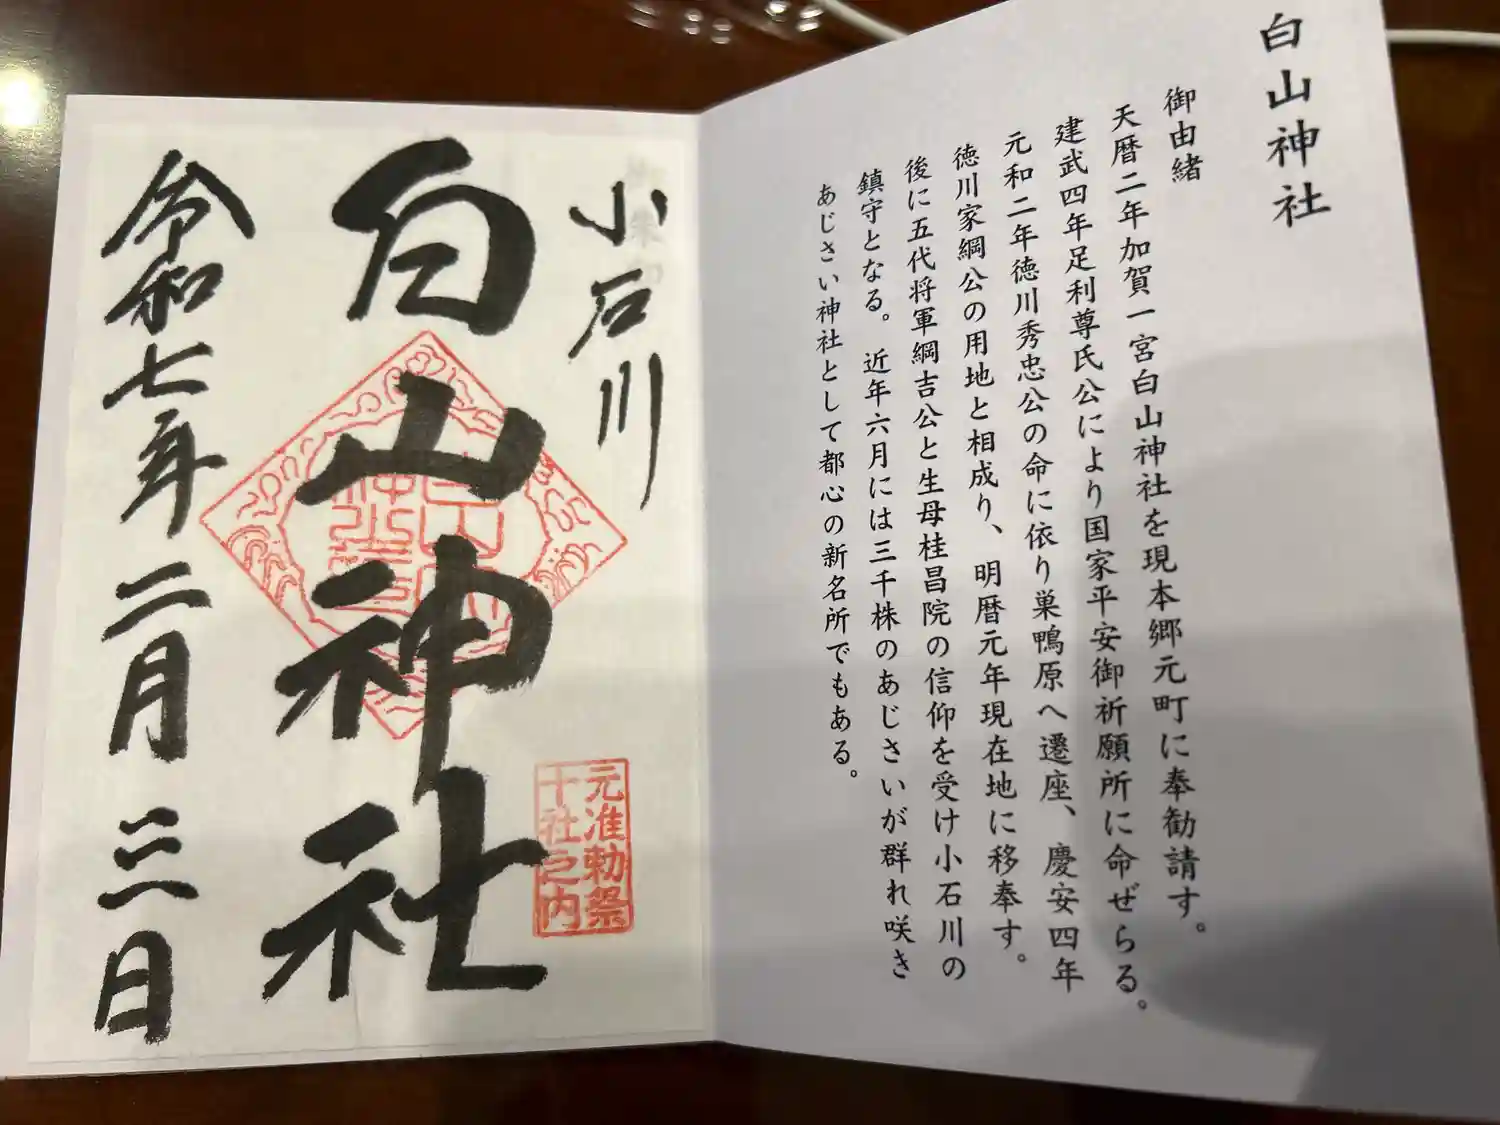 白山神社
御由緒
天暦二年加賀一宮白山神社を現本郷元町に奉勧請す。
建武四年足利尊氏公により国家平安御祈願所に命ぜらる。
元和二年徳川秀忠公の命に依り巣鴨原へ遷座、慶安四年
徳川家綱公の用地と相成り、明暦元年現在地に移奉す。
後に五代将軍綱吉公と生母桂昌院の信仰を受け小石川の
鎮守となる。近年六月には三千株のあじさいが群れ咲き
あじさい神社として都心の新名所でもある。
小石川
白山神社
元准勅祭
十社之内
令和七年二月三日